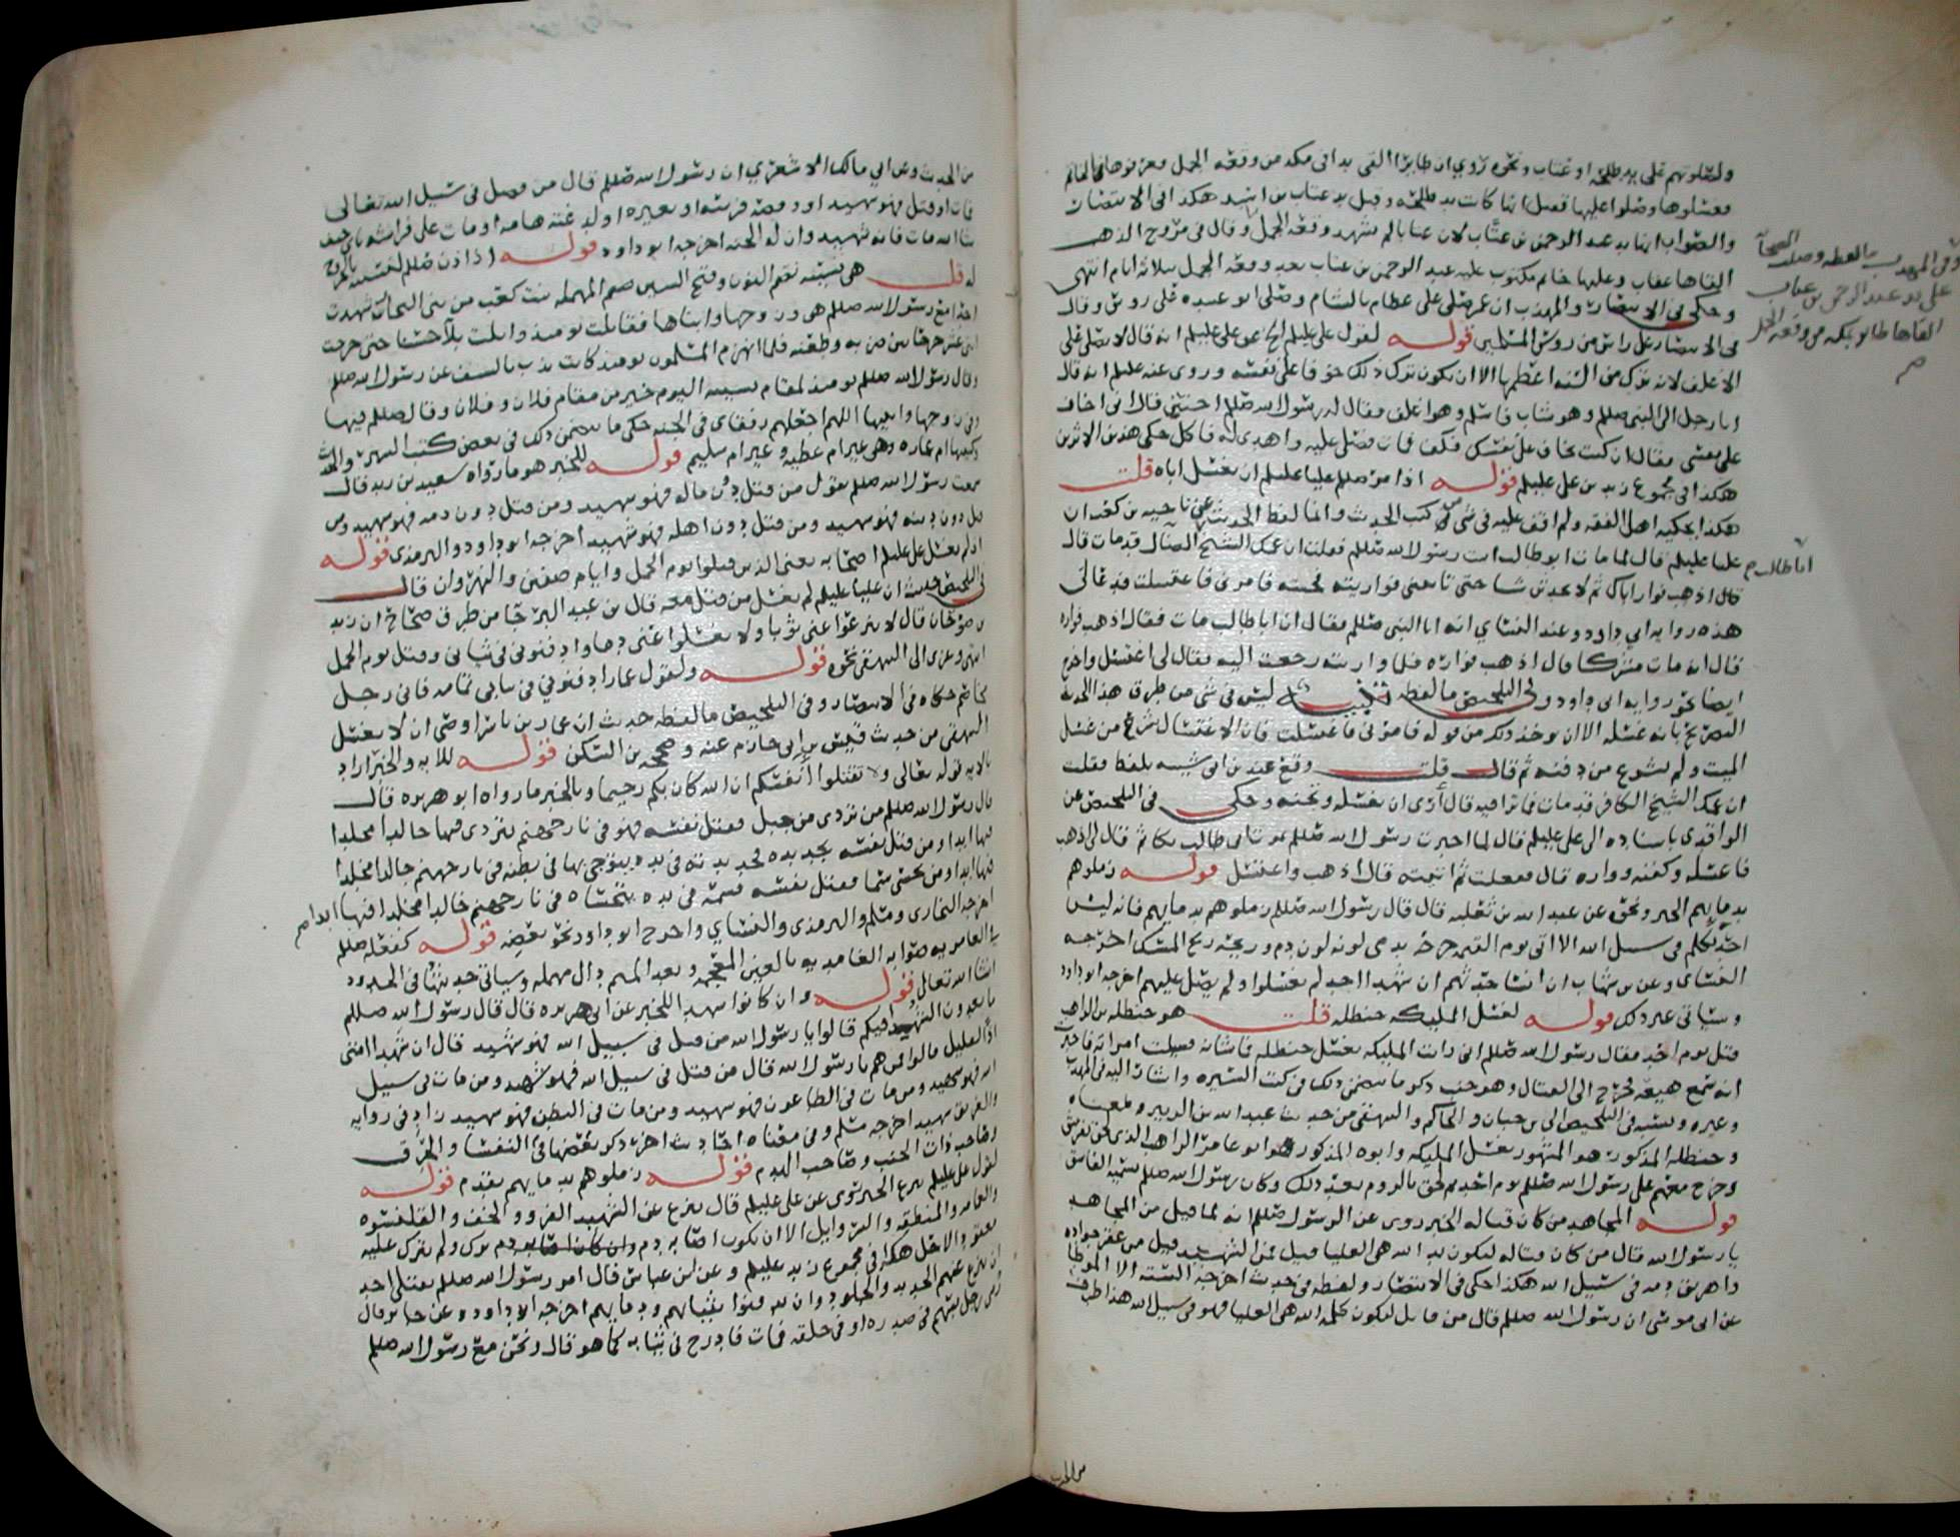 ولصلوتهم على يد طلحة او عتاب ونحوه روي ان طايرا القى يدا في مكه من وقعة الجمل فعرفوها بالخاتم
فغسلوها وصلوا عليها قيل انها كانت يد طلحه وقيل يد عتاب بن اسيد هكذا في الانتصار
والصواب انها يد عبد الرحمن بن عتاب لان عتابا لم يشهد وقعة الجمل وقال في مروج الذهب
القاها عقاب وعليها خاتم مكتوب عليه عبد الرحمن بن عتاب بعد وقعة الجمل بثلاثه ايام انتهى
وحكى في الانتصار والمهذب ان عمر صلى على عظام بالشام وصلى ابو عبيده على روس وقال
في الانتصار على راس من روس المسلمين قوله لقول علي عليلم الخ عن علي عليلم انه قال لا يصلى على
الاغلف لانه ترك من السنه اعظمها الا ان يكون ترك ذلك خوفا على نفسه وروى عنه عليلم انه قال
اتا رجل الى النبي صللم وهو شاب فاسلم وهو اغلف فقال له رسول الله صللم اختتن قال اني اخاف
على نفسي فقال ان كنت تخاف على نفسك فكف فمات فصلى عليه واهدى له فاكل حكى هذين الاثرين
هكذا في مجموع زيد بن علي عليلم قوله اذا مر صللم عليا عليلم ان يغسل اباه قلت
هكذا يحكيه اهل الفقه ولم اقف عليه في شي من كتب الحديث وانما لفظ الحديث عن ناجيه بن كعب ان
عليا عليلم قال لما مات ابو طالب اتيت رسول الله صللم فقلت ان عمك الشيخ الضال قد مات قال
قال اذهب فوار اباك ثم لا تحدثن شيا حتى تاتيني فواريته فجئته فامرني فاغتسلت فدعا لي
هذه روايه ابي داود وعند النسائي انه اتا النبي صللم فقال ان ابا طالب مات فقال اذهب فواره
قال انه مات مشركا قال اذهب فواره فلما واريته رجعت اليه فقال لي اغتسل واخرج
ايضا نحو روايه ابي داود وفي التلخيص ما لفظه تنبيه ليس في شي من طرق هذا الحديث
التصريح بانه غسله الا ان يوخذ ذلك من قوله فامرني فاغتسلت فان الاغتسال شرع من غسل
الميت ولم يشرع من دفنه ثم قال قلت وقع عند بن ابي شيبه بلفظ فقلت
ان عمك الشيخ الكافر قد مات فما ترا فيه قال أرى ان تغسله وتجنه وحكى في التلخيص عن
الواقدي باسناده الى علي عليلم قال لما اخبرت رسول الله صللم بموت ابي طالب بكا ثم قال لي اذهب
فاغسله وكفنه وواره قال ففعلت ثم اتيته قال اذهب واغتسل قوله زملوهم
بدمايهم الخبر ونحوه عن عبد الله بن ثعلبه قال قال رسول الله صللم زملوهم بدمايهم فانه ليس
احد يكلم في سبيل الله الا اتى يوم القيمه جرحه يدمى لونه لون دم وريحه ريح المسك اخرجه
النسائي وعن بن شهاب ان انسا حدثهم ان شهدا احد لم يغسلوا ولم يصل عليهم اخرجه ابو داود
وسياتي غير ذلك قوله لغسل المليكه حنظله قلت هو حنظله بن الراهب
قتل يوم احد فقال رسول الله صللم اني رات المليكه تغسل حنظله فما شانه فسيلت امراته فاخبرت
انه سمع هيعه فخرج الى القتال وهو جنب ذكر ما يتضمن ذلك في كتب السيره واشار اليه في المهذب
وغيره ونسبه في التلخيص الى بن حبان والحاكم والبيهقي من حديث عبد الله بن الزبير ومعناه
وحنظله المذكور هو المشهور بغسيل المليكه وابوه المذكور هو ابو عامر الراهب الذي لحق بقريش
وخرج معهم على رسول الله صللم يوم احد ثم لحق بالروم بعد ذلك وكان رسول الله صللم يسميه الفاسق
قوله المجاهد من كان قتاله الخبر روى عن الرسول صللم انه لما قيل من المجاهد
يا رسول الله قال من كان قتاله لتكون يد الله هي العليا قيل فمن الشهيد قيل من عقر جواده
واهريق دمه في سبيل الله هكذا حكى في الانتصار ولفظه في حديث اخرجه الستة الا الموطا
عن ابي موسى ان رسول الله صللم قال من قاتل لتكون كلمة الله هي العليا فهو في سبيل الله هذا طرف
وفي المهذب ما لفظه وصلت الصحابة
على يد عبد الرحمن بن عتاب
القاها طاير بمكه من وقعة الجمل
ابا طالب
من الحديث
من الحديث وعن ابي مالك الاشعري ان رسول الله صللم قال من فصل في سبيل الله تعالى
فمات او قتل فهو شهيد او وقصه فرسه او بعيره او لدغته هامه او مات على فراشه باي حتف
شا الله مات فانه شهيد وان له الجنه اخرجه ابو داود قوله اذا ذن صللم لنسيبه بالخروج
له قلت هي نسيبه بضم النون وفتح السين المهمله بنت كعب من بني النجار شهدت
احدا مع رسول الله صللم هي وزوجها وابناها فقاتلت يومئذ وابلت بلآ حسنا حتى جرحت
اثني عشر جرحا بين ضربه وطعنه فلما انهزم المسلمون يومئذ كانت تذب بالسيف عن رسول الله صللم
وقال رسول الله صللم يومئذ لمقام نسيبه اليوم خير من مقام فلان وفلان وقال صللم فيها
وفي زوجها وابنيها اللهم اجعلهم رفقاي في الجنه حكى ما يتضمن ذلك في بعض كتب السيره والحديث
وكنيتها ام عماره وهي غير ام عطيه وغير ام سليم قوله للخبر هو ما رواه سعيد بن زيد قال
سمعت رسول الله صللم يقول من قتل دون ماله فهو شهيد ومن قتل دون دمه فهو شهيد ومن
قتل دون دينه فهو شهيد ومن قتل دون اهله فهو شهيد اخرجه ابو داود والترمذي قوله
اذ لم يغسل علي عليلم اصحابه يعني الذين قتلوا يوم الجمل وايام صفين والنهروان قال
في التلخيص حديث ان عليا عليلم لم يغسل من قتل معه قال بن عبد البر جآ من طرق صحاح ان زيد
بن صوحان قال لا تنزعوا عني ثوبا ولا تغسلوا عني دما وادفنوني في ثيابي وقتل يوم الجمل
انتهى وعزى الى البيهقي نحوه قوله ولقول عمار ادفنوني في ثيابي تمامه فاني رجل
مخاصم حكاه في الانتصار وفي التلخيص ما لفظه حديث ان عمار بن ياسر اوصى ان لا يغسل
البيهقي من حديث قيس بن ابي حازم عنه وصححه بن السكن قوله للايه والخبر اراد
بالايه قوله تعالى ولا تقتلوا أنفسكم ان الله كان بكم رحيما وبالخبر ما رواه ابو هريره قال
قال رسول الله صللم من تردى من جبل فقتل نفسه فهو في نار جهنم يتردى فيها خالدا مخلدا
فيها ابدا ومن قتل نفسه بحديده فحديدته في يده يتوجى بها في بطنه في نار جهنم خالدا مخلدا
فيها ابدا ومن تحسى سما فقتل نفسه فسمه في يده يتحساه في نار جهنم خالدا مخلدا فيها ابدا
اخرجه البخاري ومسلم والترمذي والنسائي واخرج ابو داود نحو بعضه قوله كفعله صللم
في العامريه صوابه الغامديه بالعين المعجمه وبعد الميم دال مهمله وسياتي حديثها في الحدود
انشا الله تعالى قوله وان كانوا شهدا للخبر عن ابي هريره قال قال رسول الله صللم
ما تعدون الشهيد فيكم قالوا يا رسول الله من قتل في سبيل الله فهو شهيد قال ان شهدا امتي
اذًا لقليل قالوا فمن هم يا رسول الله قال من قتل في سبيل الله فهو شهيد ومن مات في سبيل
الله فهو شهيد ومن مات في الطاعون فهو شهيد ومن مات في البطن فهو شهيد زاد في روايه
والغريق شهيد اخرجه مسلم وفي معناه احاديث اخر ذكر بعضها في النفسا والحَرِق
وصاحب ذات الجنب وصاحب الهدم قوله زملوهم بدمايهم تقدم قوله
لقول علي عليلم ينزع الخبر روى عن علي عليلم قال ينزع عن الشهيد الفرو والخف والقلنسوه
والعمامه والمنطقه والسراويل الا ان يكون اصابه دم وان كان اصابه دم ترك ولم يترك عليه
معقود الا حل هكذا في مجموع زيد عليلم وعن بن عباس قال امر رسول الله صللم بقتلى احد
ان ينزع عنهم الحديد والجلود وان يدفنوا بثيابهم ودمايهم اخرجه ابو داود وعن جابر قال
رمي رجل بسهم في صدره او في حلقه فمات فادرج في ثيابه كما هو قال ونحن مع رسول الله صللم